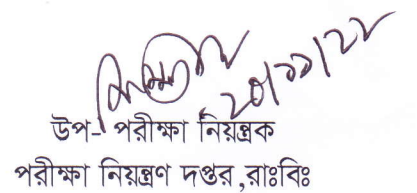 ২০/১১/২২
উপ- পরীক্ষা নিয়ন্ত্রক
পরীক্ষা নিয়ন্ত্রণ দপ্তর,রাঃবিঃ